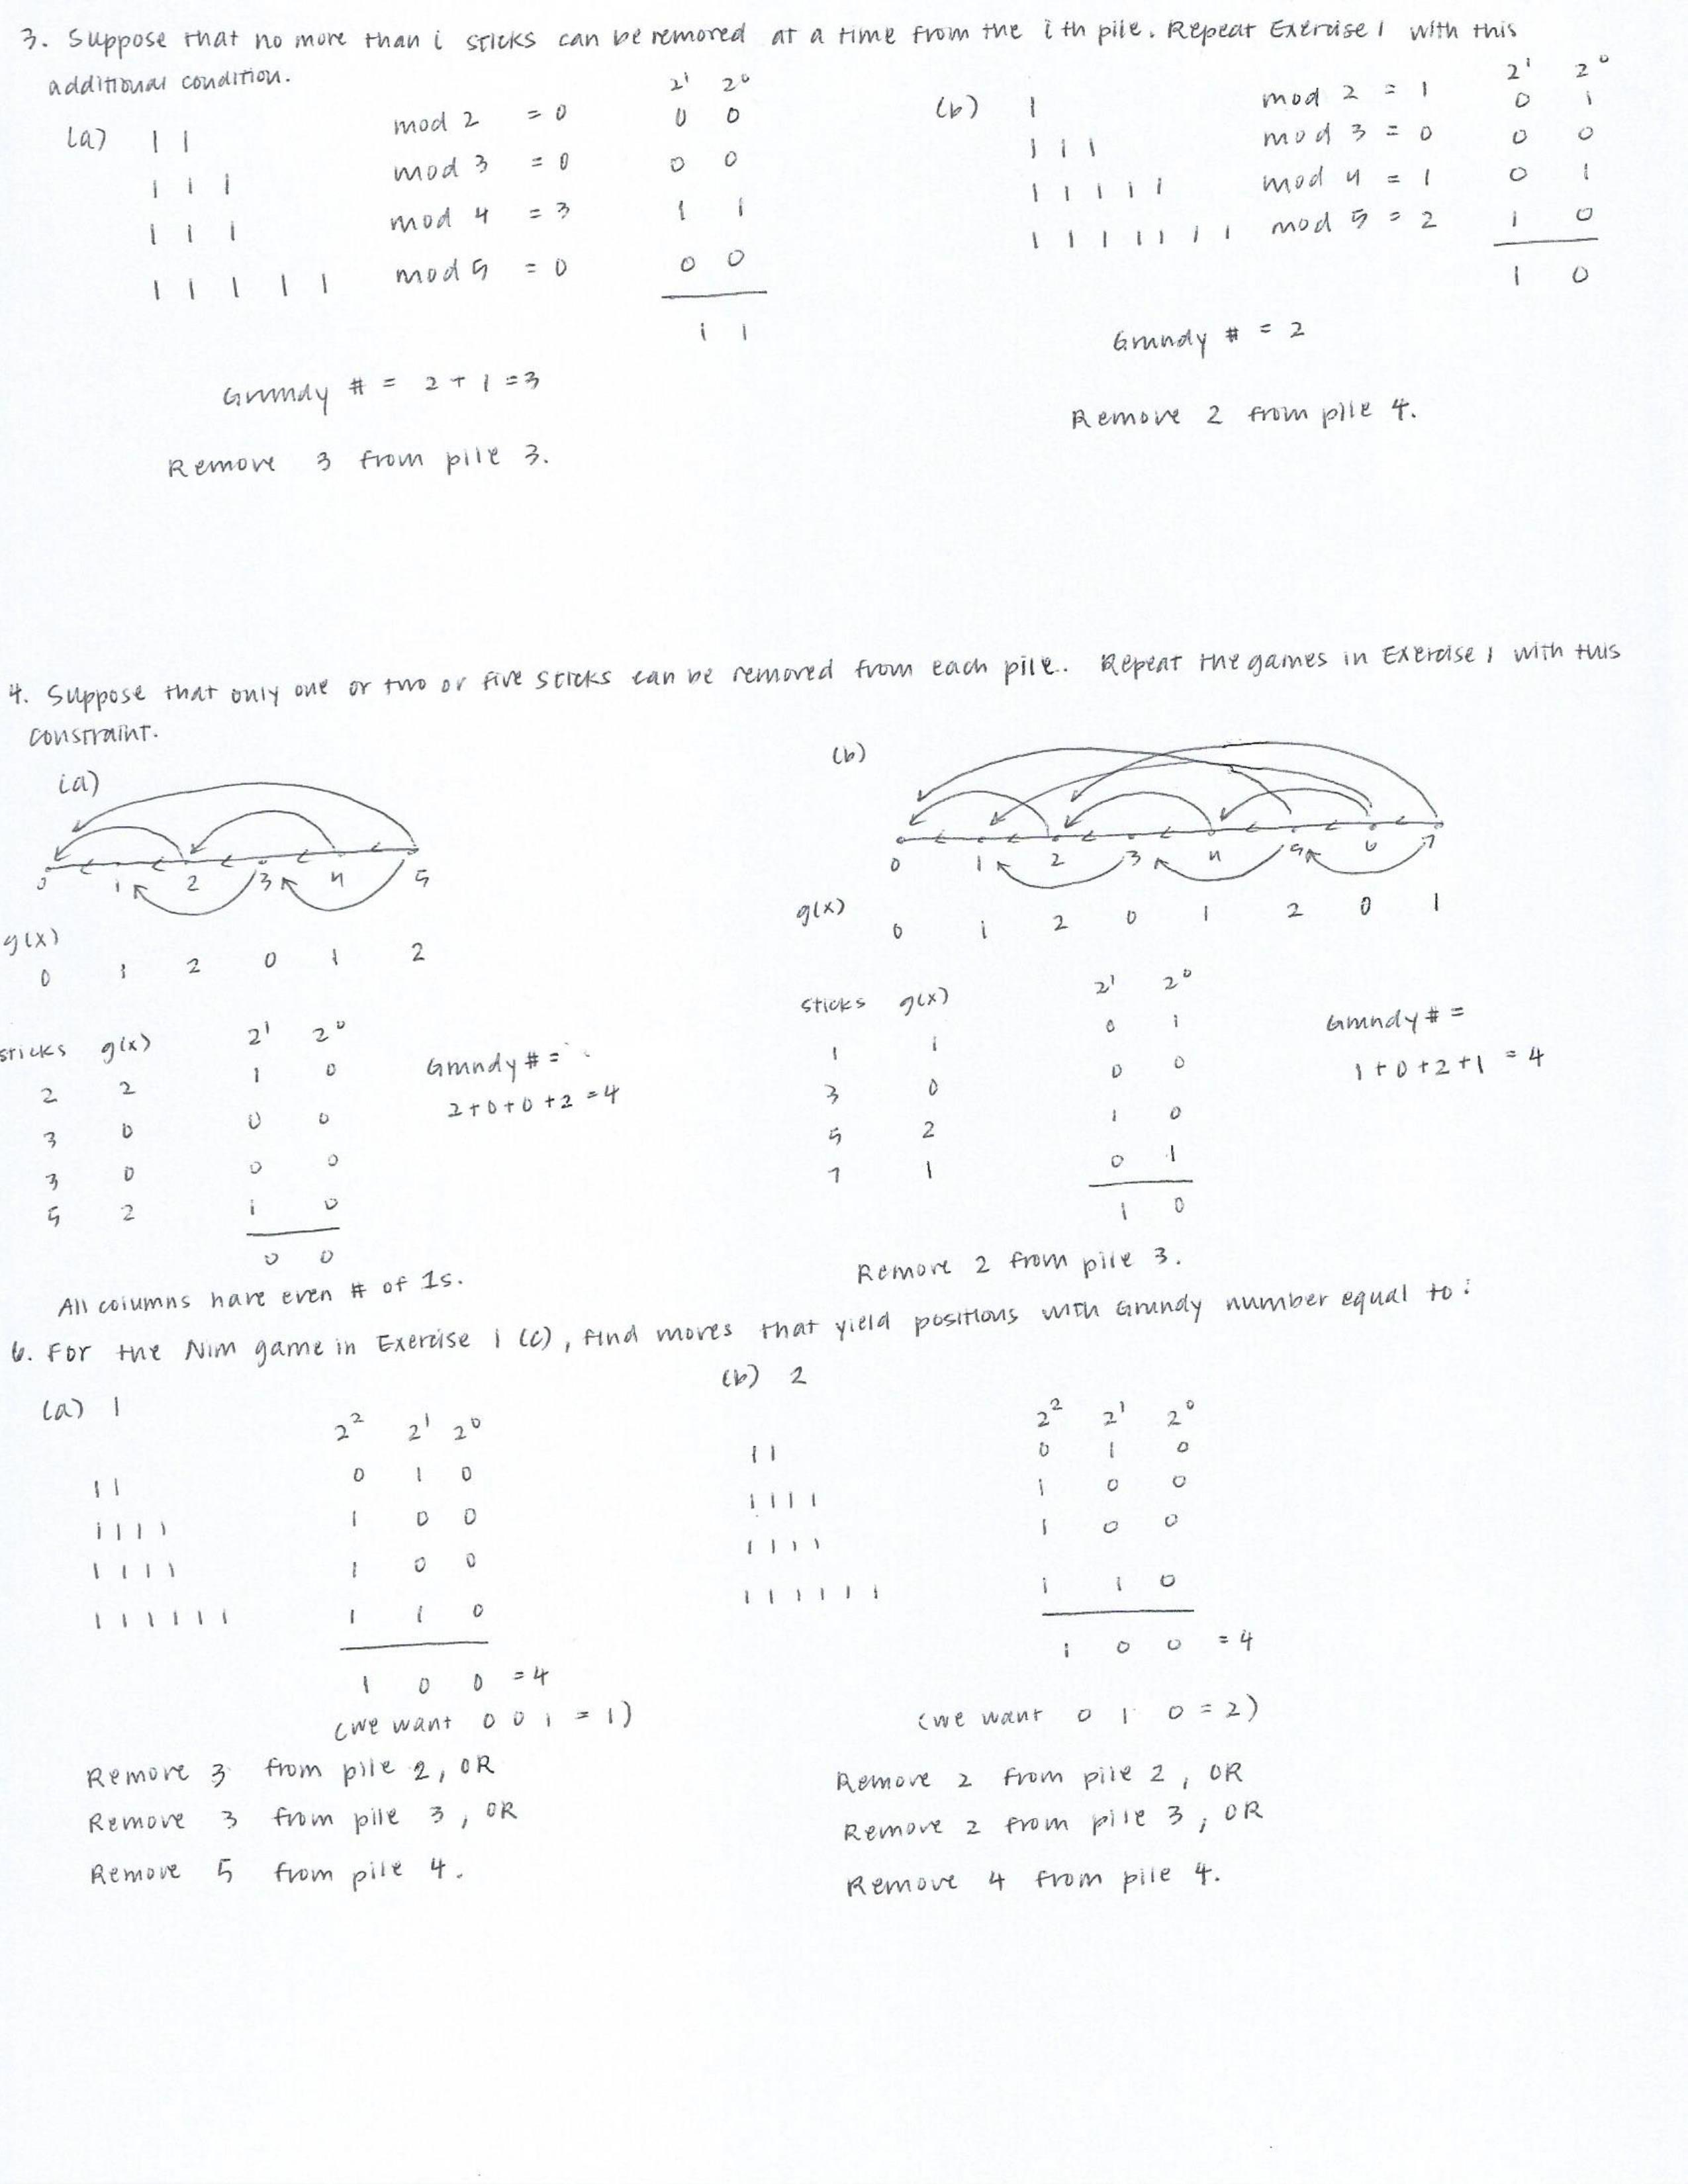 3. Suppose that no more than i sticks can be removed at a time from the i th pile. Repeat Exercise 1 with this
additional condition.
(a)
2¹ 2⁰
| | mod 2 = 0 0 0
| | | mod 3 = 0 0 0
| | | mod 4 = 3 1 1
| | | | | mod 5 = 0 0 0
1 1
Grundy # = 2 + 1 = 3
Remove 3 from pile 3.
(b)
2¹ 2⁰
| mod 2 = 1 0 1
| | | mod 3 = 0 0 0
| | | | | mod 4 = 1 0 1
| | | | | | | mod 5 = 2 1 0
1 0
Grundy # = 2
Remove 2 from pile 4.
4. Suppose that only one or two or five sticks can be removed from each pile. Repeat the games in Exercise 1 with this
constraint.
(a)
0 1 2 3 4 5
g(x)
0 1 2 0 1 2
sticks g(x) 2¹ 2⁰
2 2 1 0
3 0 0 0
3 0 0 0
5 2 1 0
0 0
Grundy # =
2+0+0+2 = 4
All columns have even # of 1s.
(b)
0 1 2 3 4 5 6 7
g(x) 0 1 2 0 1 2 0 1
sticks g(x) 2¹ 2⁰
1 1 0 1
3 0 0 0
5 2 1 0
7 1 0 1
1 0
Grundy # =
1+0+2+1 = 4
Remove 2 from pile 3.
6. For the Nim game in Exercise 1 (c), find moves that yield positions with Grundy number equal to:
(a) 1
2² 2¹ 2⁰
| | 0 1 0
| | | | 1 0 0
| | | | 1 0 0
| | | | | | 1 1 0
1 0 0 = 4
(we want 0 0 1 = 1)
Remove 3 from pile 2, OR
Remove 3 from pile 3, OR
Remove 5 from pile 4.
(b) 2
2² 2¹ 2⁰
| | 0 1 0
| | | | 1 0 0
| | | | 1 0 0
| | | | | | 1 1 0
1 0 0 = 4
(we want 0 1 0 = 2)
Remove 2 from pile 2, OR
Remove 2 from pile 3, OR
Remove 4 from pile 4.